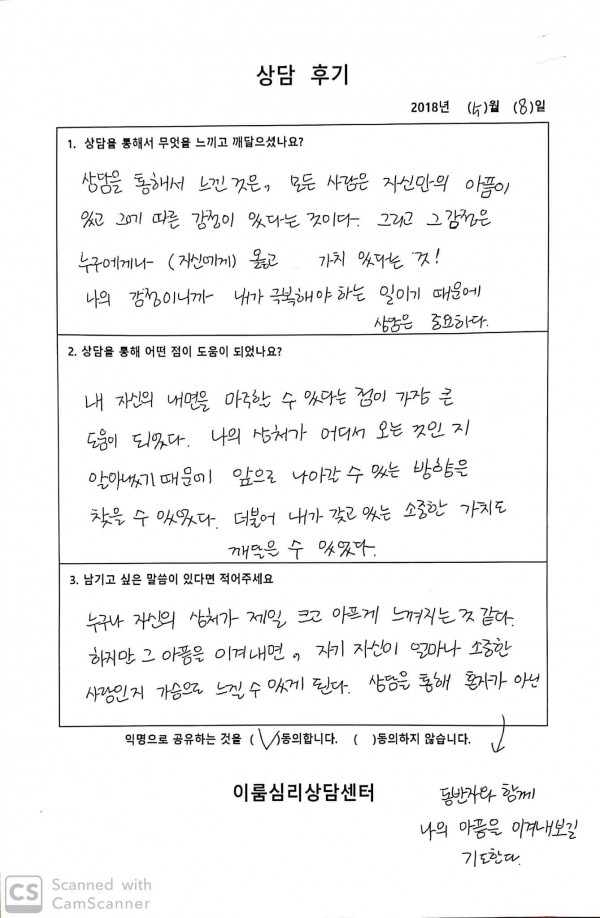 상담 후기
2018년 (4)월 (8)일
1. 상담을 통해서 무엇을 느끼고 깨달으셨나요?
상담을 통해서 느낀 것은, 모든 사람은 자신만의 아픔이
있고 그에 따른 감정이 있다는 것이다. 그리고 그 감정은
누구에게나 (자신에게) 옳고 가치 있다는 것!
나의 감정이니까 내가 극복해야 하는 일이기 때문에
상담은 중요하다.
2. 상담을 통해 어떤 점이 도움이 되었나요?
내 자신의 내면을 마주할 수 있다는 점이 가장 큰
도움이 되었다. 나의 상처가 어디서 오는 것인 지
알아냈기 때문에 앞으로 나아갈 수 있는 방향을
찾을 수 있었다. 더불어 내가 갖고 있는 소중한 가치도
깨달을 수 있었다.
3. 남기고 싶은 말씀이 있다면 적어주세요
누구나 자신의 상처가 제일 크고 아프게 느껴지는 것 같다.
하지만 그 아픔을 이겨내면, 자기 자신이 얼마나 소중한
사람인지 가슴으로 느낄 수 있게 된다. 상담을 통해 혼자가 아닌
익명으로 공유하는 것을 (✓)동의합니다. ( )동의하지 않습니다.
동반자와 함께
나의 아픔을 이겨내보길
기도한다.
이룸심리상담센터
CS Scanned with
CamScanner